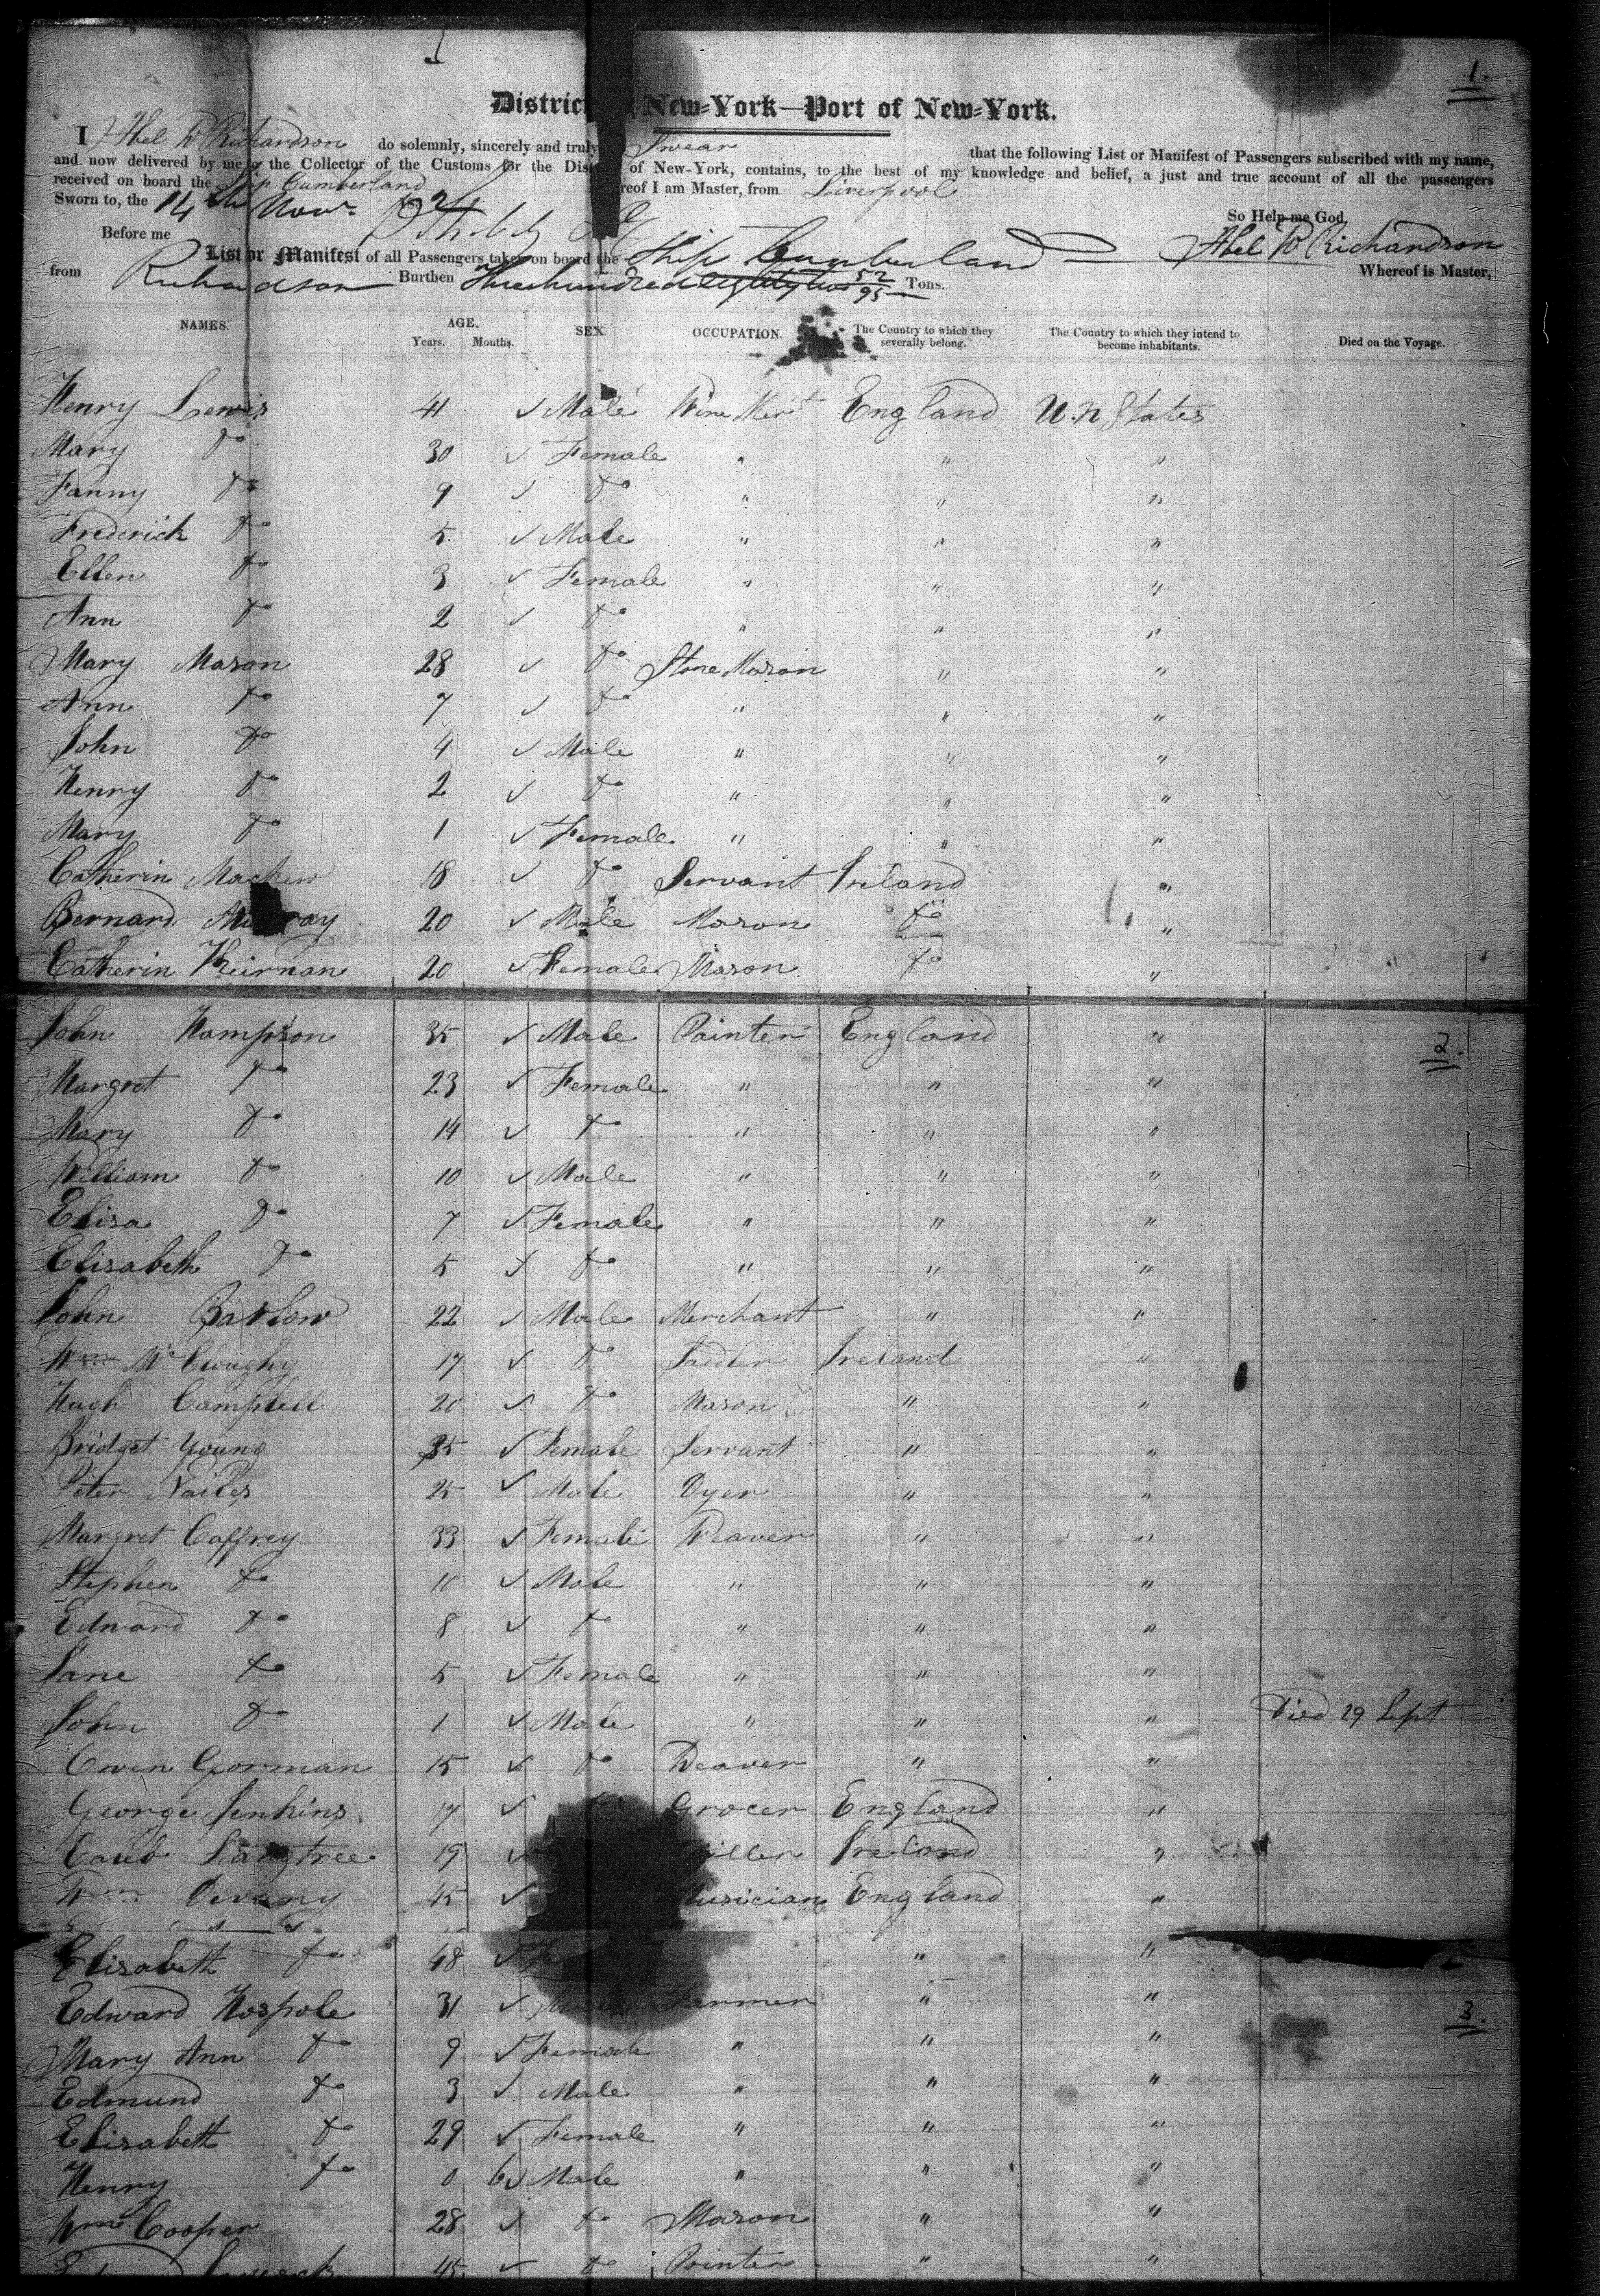 1.
District New=York—Port of New=York.
I Abel W Richardson do solemnly, sincerely and truly Swear that the following List or Manifest of Passengers subscribed with my name,
and now delivered by me to the Collector of the Customs for the District of New-York, contains, to the best of my knowledge and belief, a just and true account of all the passengers
received on board the Ship Cumberland whereof I am Master, from Liverpool
Sworn to, the 14th Novr.
So Help me God.
Before me
Abel W Richardson
List or Manifest of all Passengers taken on board the Ship Cumberland Whereof is Master,
from Richardson Burthen Three hundred eighty two 52/95 Tons.
NAMES. AGE. SEX. OCCUPATION. The Country to which they severally belong. The Country to which they intend to become inhabitants. Died on the Voyage.
Years. Months.
Henry Lewis 41 ✓ Male Wine Mert England U.n States
Mary Do 30 ✓ Female " " "
Fanny Do 9 ✓ Do " " "
Frederick Do 5 ✓ Male " " "
Ellen Do 3 ✓ Female " " "
Ann Do 2 ✓ Do " " "
Mary Mason 28 ✓ Do Stone Mason " "
Ann Do 7 ✓ Do " " "
John Do 4 ✓ Male " " "
Henry Do 2 ✓ Do " " "
Mary Do 1 ✓ Female " " "
Catherin 18 ✓ Do Servant Ireland "
Bernard 20 ✓ Male Mason Do "
Catherin Keirnan 20 ✓ Female Mason Do "
John Hampson 35 ✓ Male Painter England "
2.
Margret Do 23 ✓ Female " " "
Mary Do 14 ✓ Do " " "
William Do 10 ✓ Male " " "
Elisa Do 7 ✓ Female " " "
Elisabeth Do 5 ✓ Do " " "
John Barlow 22 ✓ Male Merchant " "
Wm McCloughy 17 ✓ Do Sadler Ireland "
Hugh Campbell 20 ✓ Do Mason " "
Bridget Young 35 ✓ Female Servant " "
Peter Nailes 25 ✓ Male Dyer " "
Margret Caffrey 33 ✓ Female Weaver " "
Stephen Do 10 ✓ Male " " "
Edward Do 8 ✓ Do " " "
Jane Do 5 ✓ Female " " "
John Do 1 ✓ Male " " " Died 29 Sept
Owen Gorman 15 ✓ Do Weaver " "
George Jenkins 17 ✓ Grocer England "
Langtree 19 ✓ Ireland "
Wm Devany 45 ✓ Musician England "
Elisabeth Do 48 ✓ " "
Edward Hospole 31 ✓ Male Farmer " "
3.
Mary Ann Do 9 ✓ Female " " "
Edmund Do 3 ✓ Male " " "
Elisabeth Do 29 ✓ Female " " "
Henry Do 0 6 ✓ Male " " "
Wm Cooper 28 ✓ Do Mason " "
45 ✓ Do Printer " "